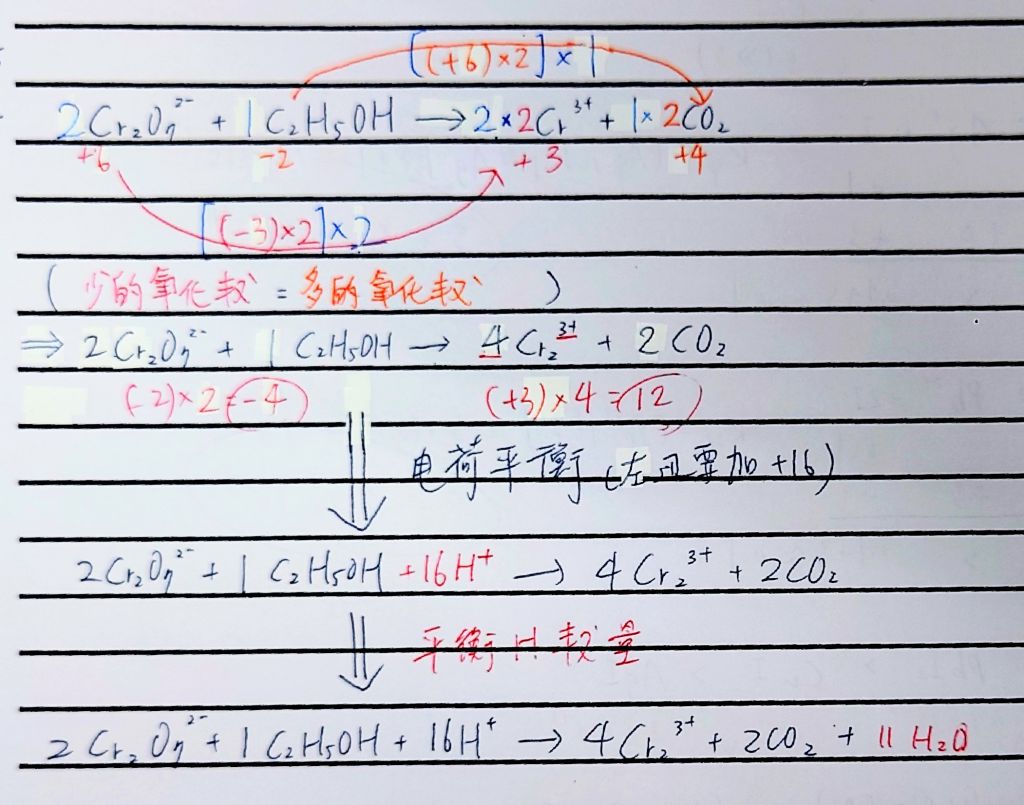 [(+6)×2]×1
2Cr₂O₇²⁻ + 1C₂H₅OH → 2×2Cr³⁺ + 1×2CO₂
+6 -2 +3 +4
[(-3)×2]×2
(少的氧化数 = 多的氧化数)
⇒ 2Cr₂O₇²⁻ + 1 C₂H₅OH → 4Cr₂³⁺ + 2CO₂
(-2)×2=-4 (+3)×4=12
电荷平衡(左边要加+16)
2Cr₂O₇²⁻ + 1 C₂H₅OH +16H⁺ → 4Cr₂³⁺ + 2CO₂
平衡H数量
2Cr₂O₇²⁻ + 1C₂H₅OH + 16H⁺ → 4Cr₂³⁺ + 2CO₂ + 11H₂O